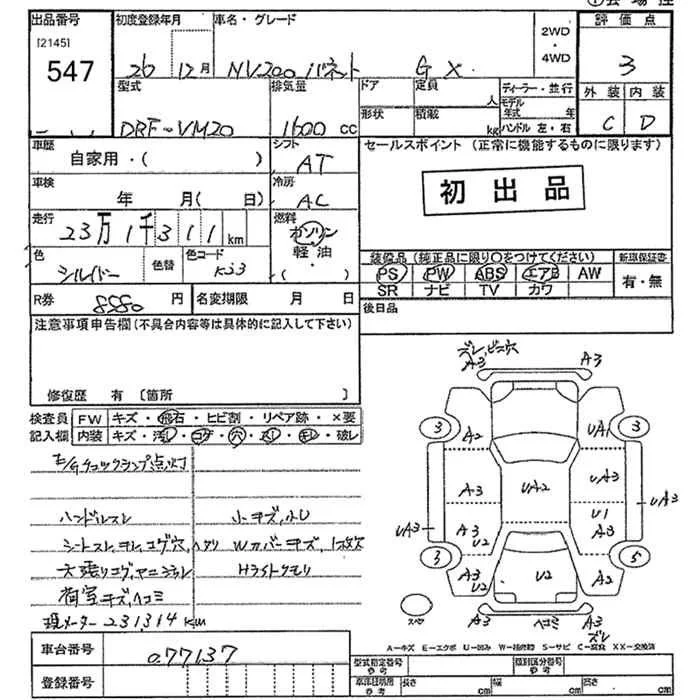 出品番号 初度登録年月 車名・グレード 2WD・4WD 評価点
[2145]
547
26 12月 NV200 バネット GX 3
型式 排気量 ドア 定員 人 ディーラー・並行 外装 内装
DBF-VM20 1600 CC 形状 積載 kg モデル年式 年 ハンドル 左・右 C D
車歴 自家用・( ) シフト AT セールスポイント (正常に機能するものに限ります)
車検 年 月( 日) 冷房 AC 初出品
走行 23万1千311km 燃料 ガソリン 軽油 ・( )
色 シルバー 色替 色コード K23 装備品 (純正品に限り○をつけてください) 新車保証書
PS PW ABS エアB AW 有・無
SR ナビ TV カワ
R券 8880円 名変期限 月 日 後日品
注意事項申告欄(不具合内容等は具体的に記入して下さい)
修復歴 有 〔箇所 〕
検査員 FW キズ・飛石・ヒビ割・リペア跡・×要
記入欄 内装 キズ・汚レ・コゲ・穴・スレ・キレ・破レ
E/Gチェックランプ点灯
ハンドルスレ 小キズ,凹
シートスレ,キレ,コゲ穴,ヘタリ Wカバーキズ,1ヶ欠
天張りコゲ,ヤニ Hライトクモリ
荷室キズ,ヘコミ
現メーター 231314km
車台番号 077137
登録番号
ズレ,ビニ穴
A3 A3
3 A2 UA1 3
A3 UA2 UA3
UA3 UA3
A3 U2 U1 A3
3 5
A3 U2 U2 A2
スペア A3 ヘコミ A3 ズレ
A=キズ E=エクボ U=凹み W=補修跡 S=サビ C=腐食 XX=交換済
型式指定番号 参考 類別区分番号 参考
車体証明用 参考 長さ cm 幅 cm 高さ cm